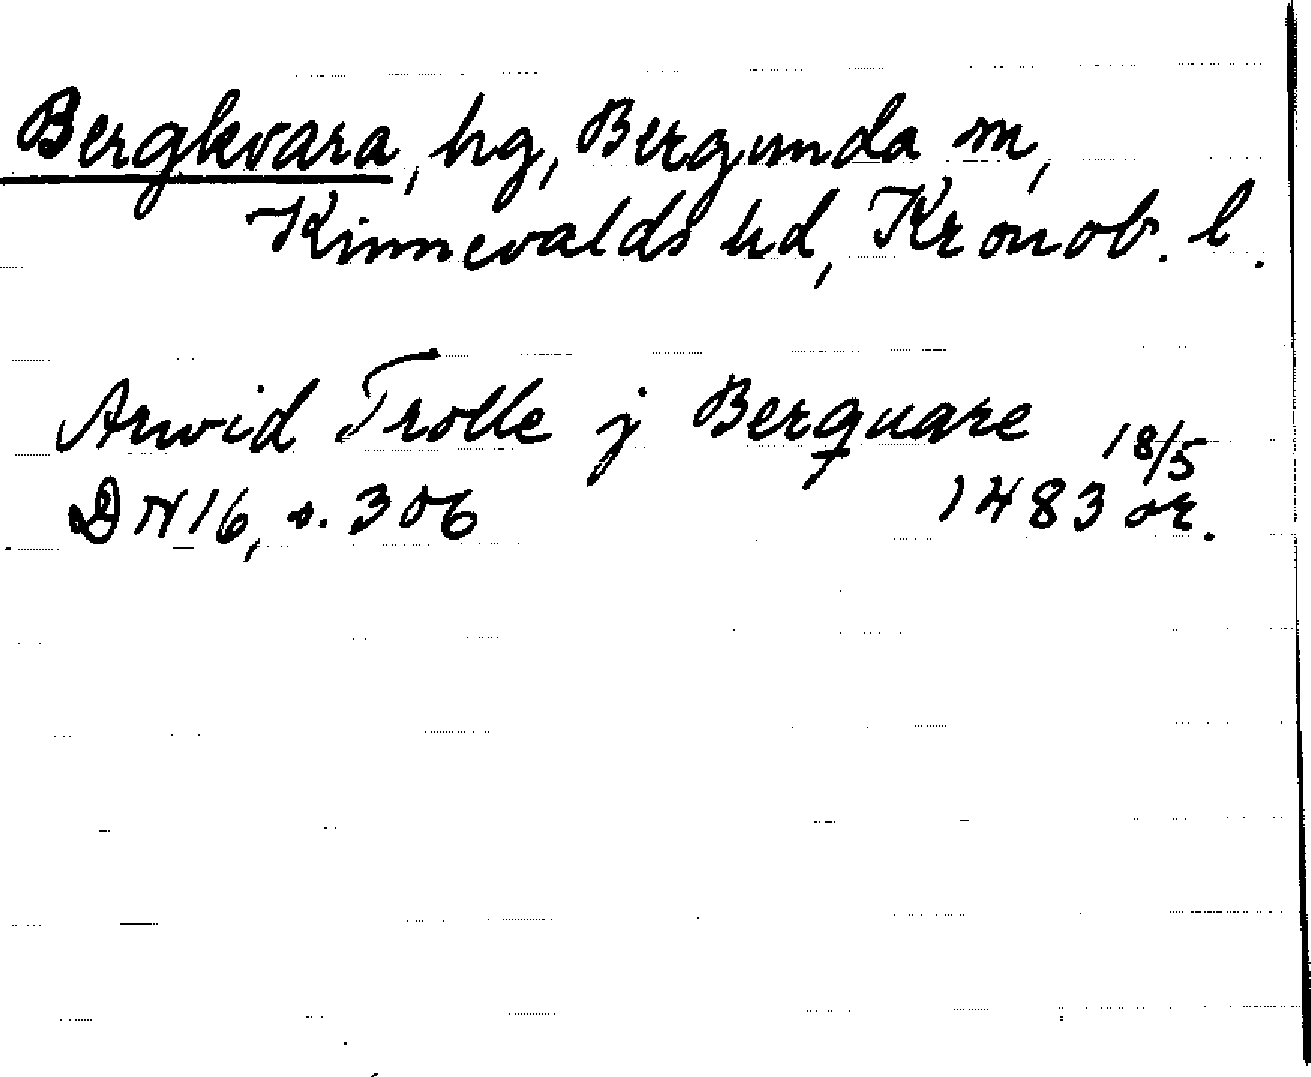 Bergkvara, hg, Bergunda sn,
Kinnevalds hd, Kronob. l.
Arwid Trolle j Berquare 18/5
DN 16, s. 306 1483 or.